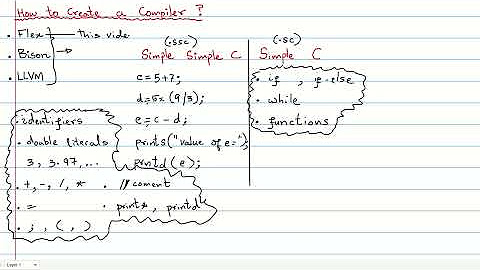 How to Create a Compiler ?
. Flex — this vide
. Bison
. LLVM
(.ssc)
Simple Simple C
c = 5+7;
d=5x(9/3);
e=c-d;
prints("value of e=");
printd(e);
(.sc)
Simple C
. if , if-else
. while
. functions
. identifiers
. double literals
3, 3.97, ...
. +, -, /, *
. =
. ; , ( , )
. // coment
. prints, printd